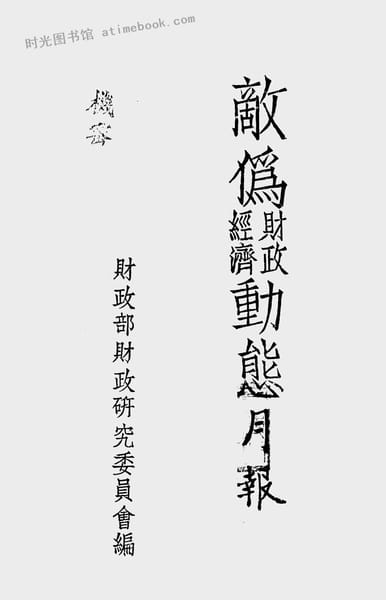 时光图书馆 atimebook.com
敵僞財政經濟動態月報
機密
財政部財政研究委員會編